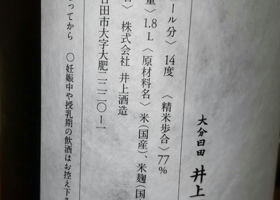 大分日田 井上
ール分〉 14度 〈精米歩合〉77%
量〉1.8L〈原材料名〉米(国産)、米麹(国
〉 株式会社 井上酒造
田市大字大肥二二二〇ー一
ってから 〇妊娠中や授乳期の飲酒はお控え下